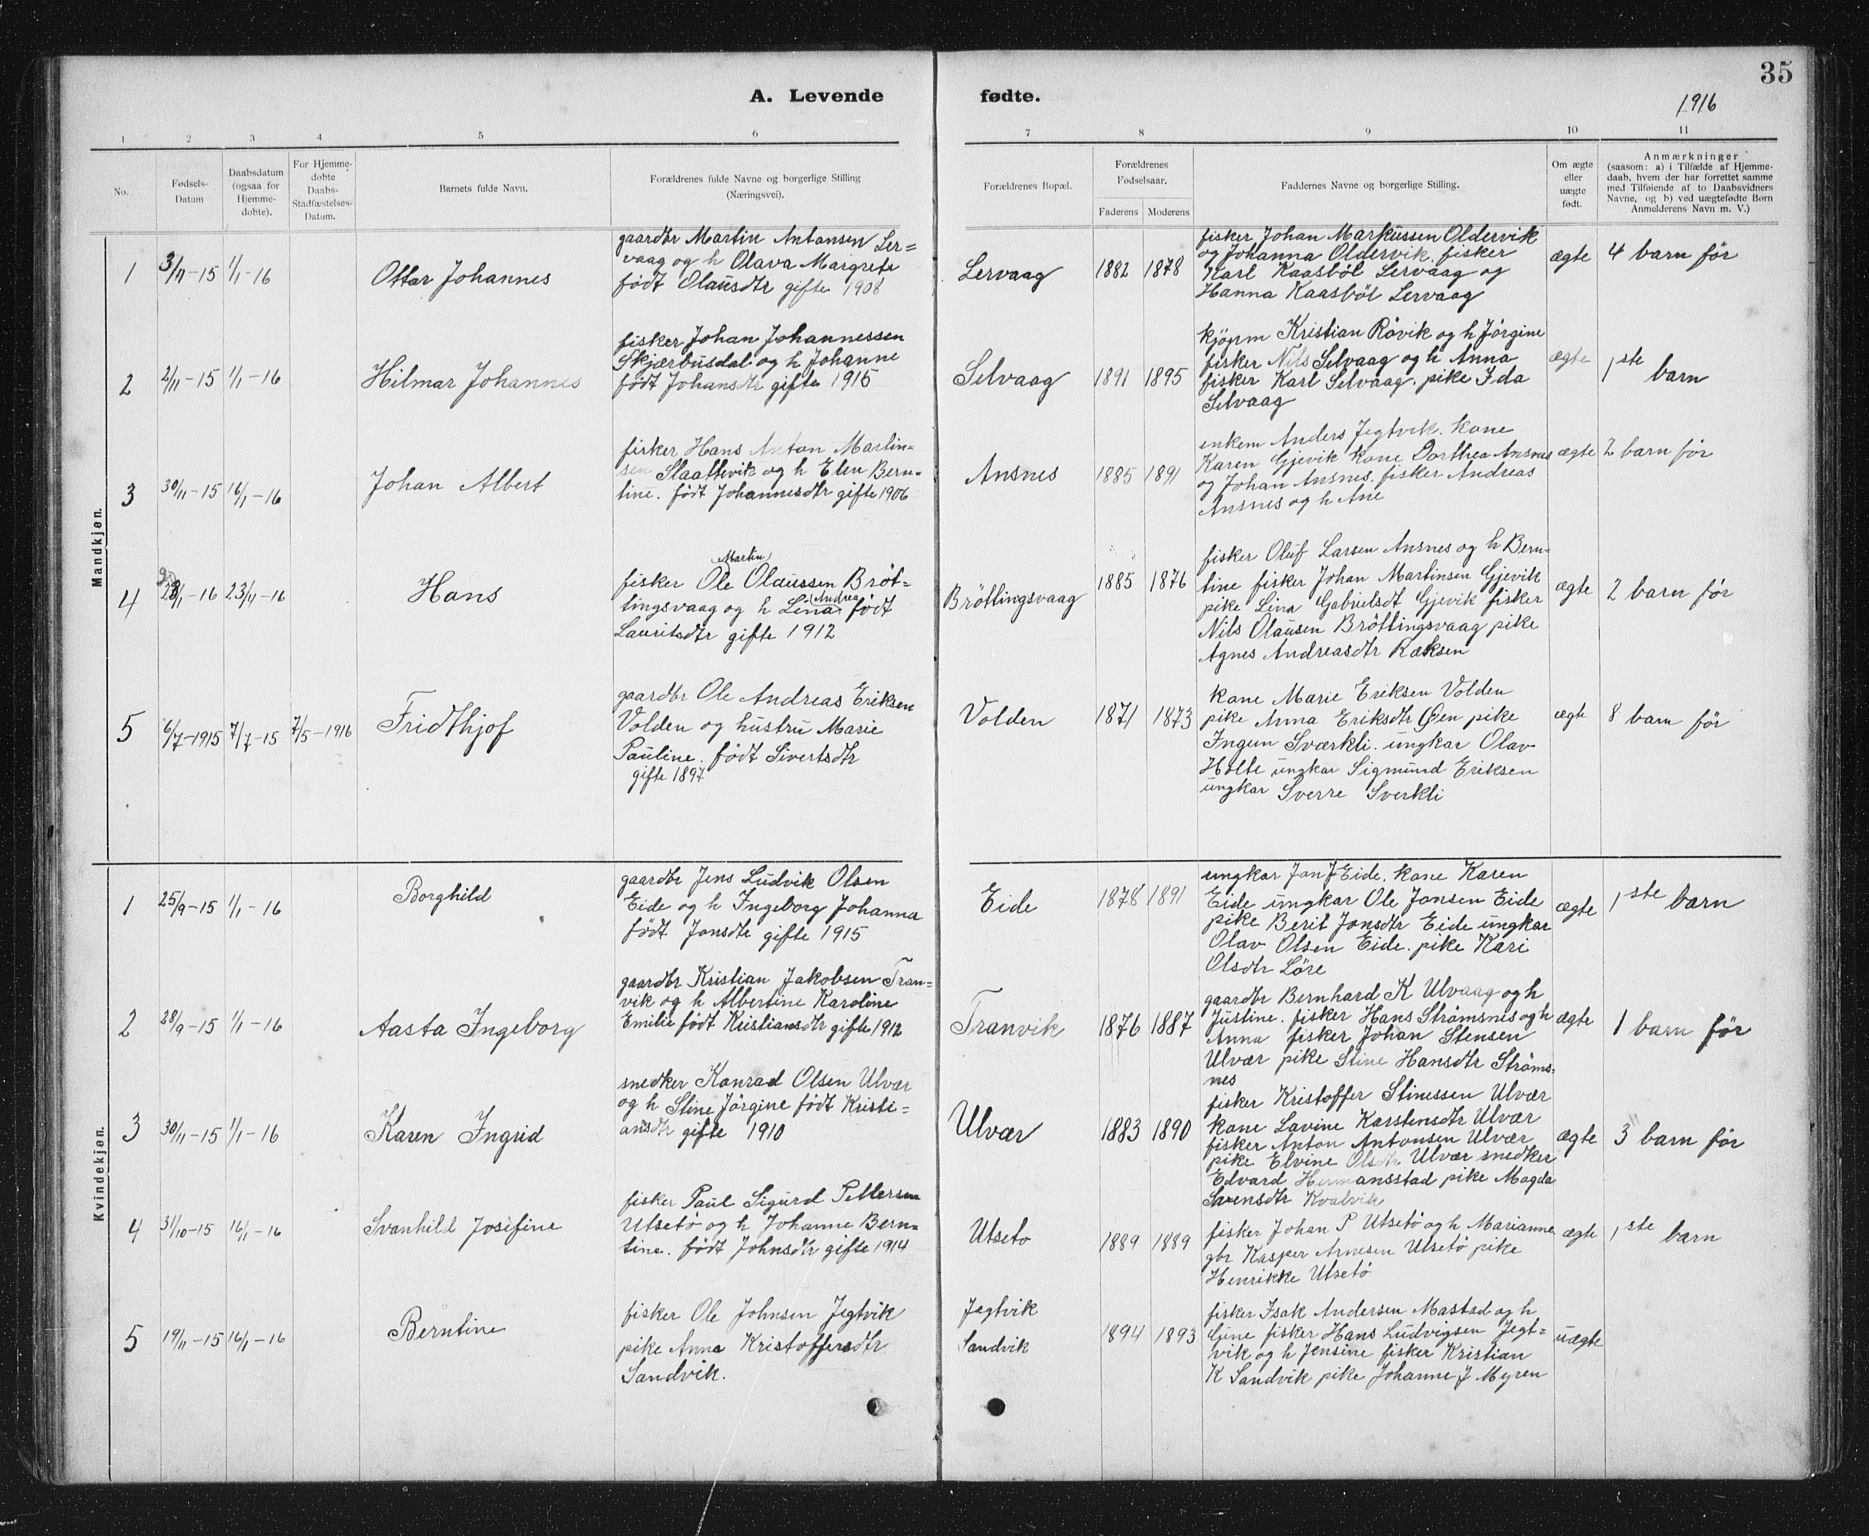 35
A. Levende fødte.
1916
1 2 3 4 5 6 7 8 9 10 11
No.
Fødsels-
Datum
Daabsdatum
(ogsaa for
Hjemme-
døbte).
For Hjemme-
døbte
Daabs-
Stadfæstelses-
Datum.
Barnets fulde Navn.
Forældrenes fulde Navne og borgerlige Stilling
(Næringsvei).
Forældrenes Bopæl.
Forældrenes
Fødselsaar.
Faderens Moderens
Faddernes Navne og borgerlige Stilling.
Om ægte
eller
uægte
født.
Anmærkninger
(saasom: a) i Tilfælde af Hjemme-
daab, hvem der har forrettet samme
med Tilføiende af to Daabsvidners
Navne, og b) ved uægtefødte Børn
Anmelderens Navn m. V.)
Mandkjøn.
1 3/11-15 1/1-16
Ottar Johannes
gaardbr Martin Antonsen Ler=
vaag og h Olava Margrete
født Olausdtr gifte 1908
Lervaag 1882 1878
fisker Johan Markussen Oldervik
og Johanna Oldervik. fisker
Karl Kaasböl Lervaag og
Hanna Kaasböl Lervaag
ægte 4 barn før
2 2/11-15 1/1-16
Hilmar Johannes
fisker Johan Johannessen
Skjærbusdal og h Johanne
født Johansdtr gifte 1915
Selvaag 1891 1895
kjøpm Kristian Rövik og h Jörgine
fisker Nils Selvaag og h Anna
fisker Karl Selvaag. pike Ida
Selvaag
ægte 1ste barn
3 30/11-15 16/1-16
Johan Albert
fisker Hans Anton Martin=
sen Slaattevik og h Elen Bern=
tine. født Johannesdtr gifte 1906
Ansnes 1885 1891
enkem Anders Jegtvik. kone
Karen Gjevik kone Dorthea Ansnes
og Johan Ansnes. fisker Andreas
Ansnes og h Ane
ægte 2 barn før
4 23/11-16
Hans
Martin
fisker Ole Olaussen Bröt=
tingsvaag og h Lina Andrea født
Lauritsdtr gifte 1912
Bröttingsvaag 1885 1876
fisker Oluf Larsen Ansnes og h Bern=
tine fisker Johan Martinsen Gjevik
pike Lina Gabrielsdt Gjevik fisker
Nils Olausen Bröttingsvaag pike
Agnes Andreasdtr Kæksen
ægte 2 barn før
5 6/7-1915 7/7-15 7/5-1916
Fridthjof
gaardbr Ole Andreas Eriksen
Volden og hustru Marie
Pauline. født Sivertsdtr
gifte 1897
Volden 1871 1873
kone Marie Eriksen Volden
pike Anna Eriksdtr Øen pike
Ingun Sværkli. ungkar Olav
Holte ungkar Sigmund Eriksen
ungkar Sverre Sverkli
ægte 8 barn før
Kvindekjøn.
1 25/9-15 1/1-16
Borghild
gaardbr Jens Ludvik Olsen
Eide og h Ingeborg Johanna
født Jonsdtr gifte 1915
Eide 1878 1891
ungkar Jon J Eide. kone Karen
Eide ungkar Ole Jonsen Eide
pike Berit Jonsdtr Eide ungkar
Olav Olsen Eide. pike Kari
Olsdtr Löre
ægte 1ste barn
2 28/9-15 1/1-16
Aasta Ingeborg
gaardbr Kristian Jakobsen Tran=
vik og h Albertine Karoline
Emilie født Kristiansdtr gifte 1912
Tranvik 1876 1887
gaardbr Bernhard K Ulvaag og h
Justine. fisker Hans Strömsnes og h
Anna fisker Johan Stensen
Ulvær pike Stine Hansdtr Ströms=
nes
ægte 1 barn før
3 30/11-15 1/1-16
Karen Ingrid
snedker Konrad Olsen Ulvær
og h Stine Jörgine født Kristi=
ansdtr gifte 1910
Ulvær 1883 1890
fisker Kristoffer Stinessen Ulvær
kone Lavine Karstensdtr Ulvær
fisker Anton Antonsen Ulvær
pike Elvine Olsdtr Ulvær snedker
Edvard Hermansstad pike Magda
Sørensdtr Kvalvik
ægte 3 barn før
4 31/10-15 16/1-16
Svanhild Josefine
fisker Paul Sigurd Pettersen
Utsetö og h Johanne Bern=
tine. født Johnsdtr gifte 1914
Utseto 1889 1889
fisker Johan P Utsetö og h Marianne
gbr Kasper Arnesen Utsetö pike
Henrikke Utsetö
ægte 1ste barn
5 19/11-15 16/1-16
Berntine
fisker Ole Johnsen Jegtvik
pike Anna Kristoffersdtr
Sandvik.
Jegtvik
Sandvik
1894 1893
fisker Isak Andersen Mastad og h
Gine fisker Hans Ludvigsen Jegt=
vik og h Jensine fisker Kristian
K Sandvik pike Johanne J Myren
uægte